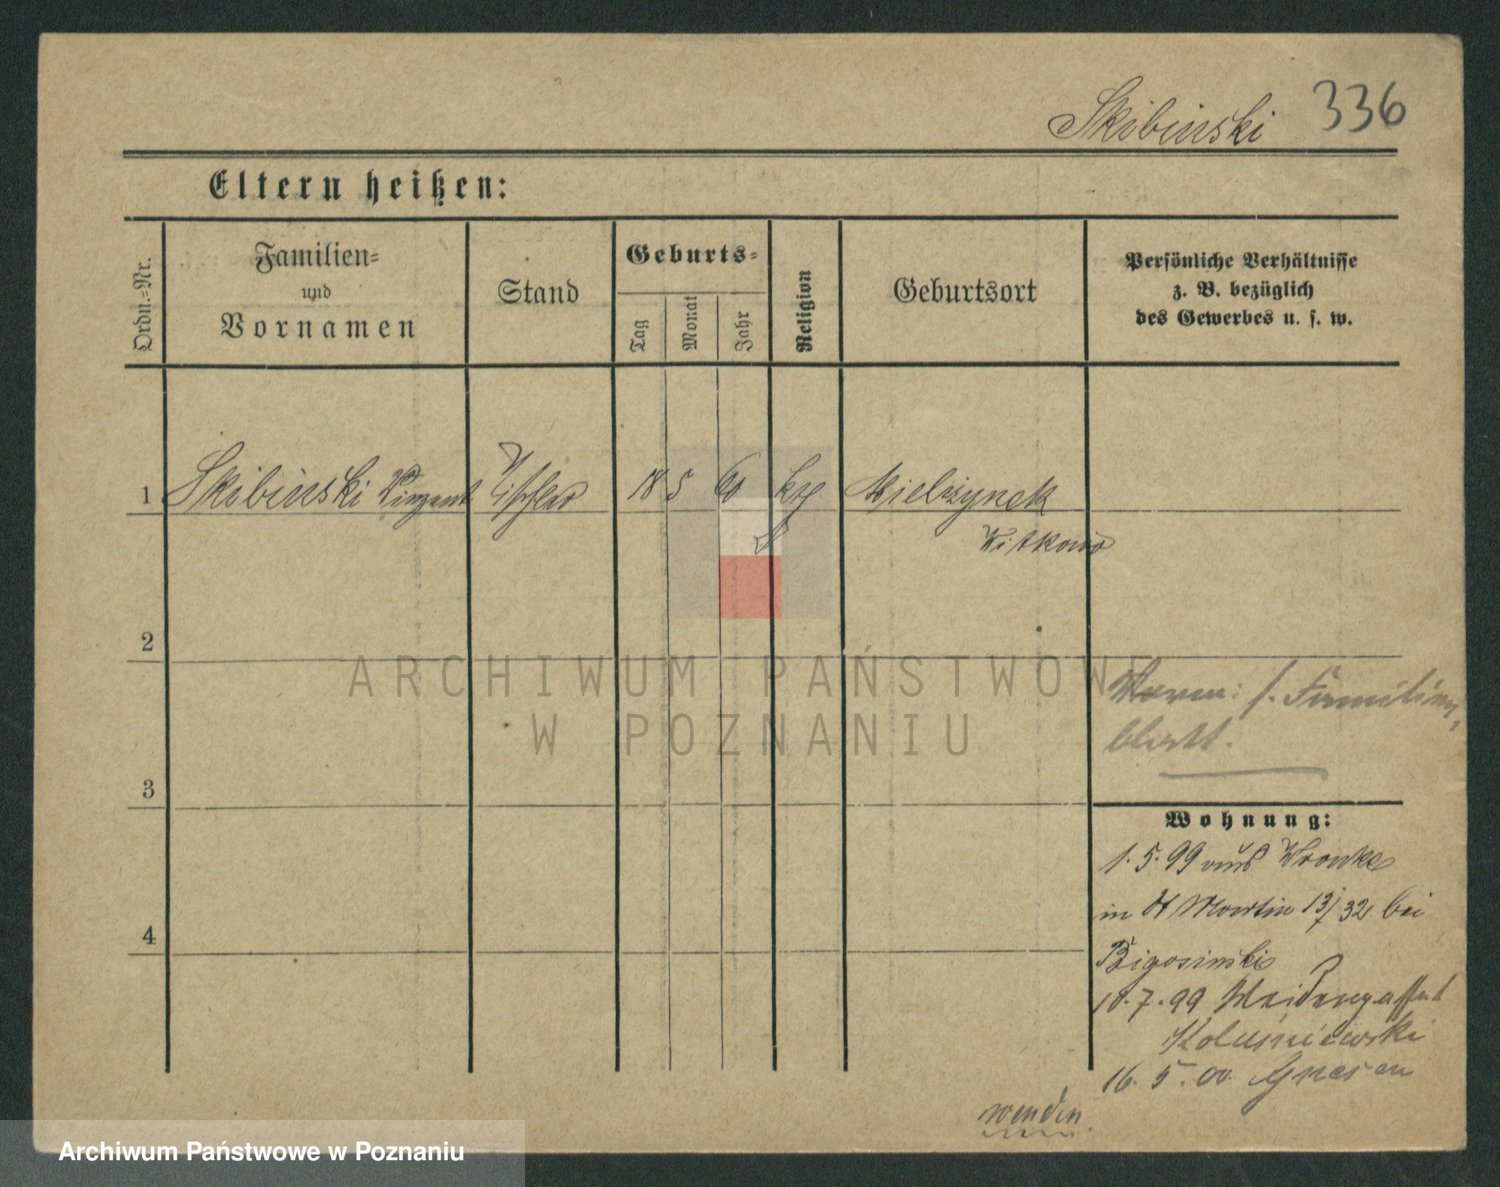 Skibinski 336
Eltern heißen:
Ordn.-Nr.
Familien-
und
Vornamen
Stand
Geburts-
Tag
Monat
Jahr
Religion
Geburtsort
Persönliche Verhältnisse
z. B. bezüglich
des Gewerbes u. s. w.
1 Skibinski Vinzent Tischler 18 5 60 kth Mielzynek
Witkowo
2
ARCHIWUM PAŃSTWOWE
W POZNANIU
s. Familien-
blatt.
3
Wohnung:
1.5.99 aus Wronke
in St Martin 13/32 bei
Bigosinski
4
18.7.99
16.5.00 Gnesen
wenden.
Archiwum Państwowe w Poznaniu